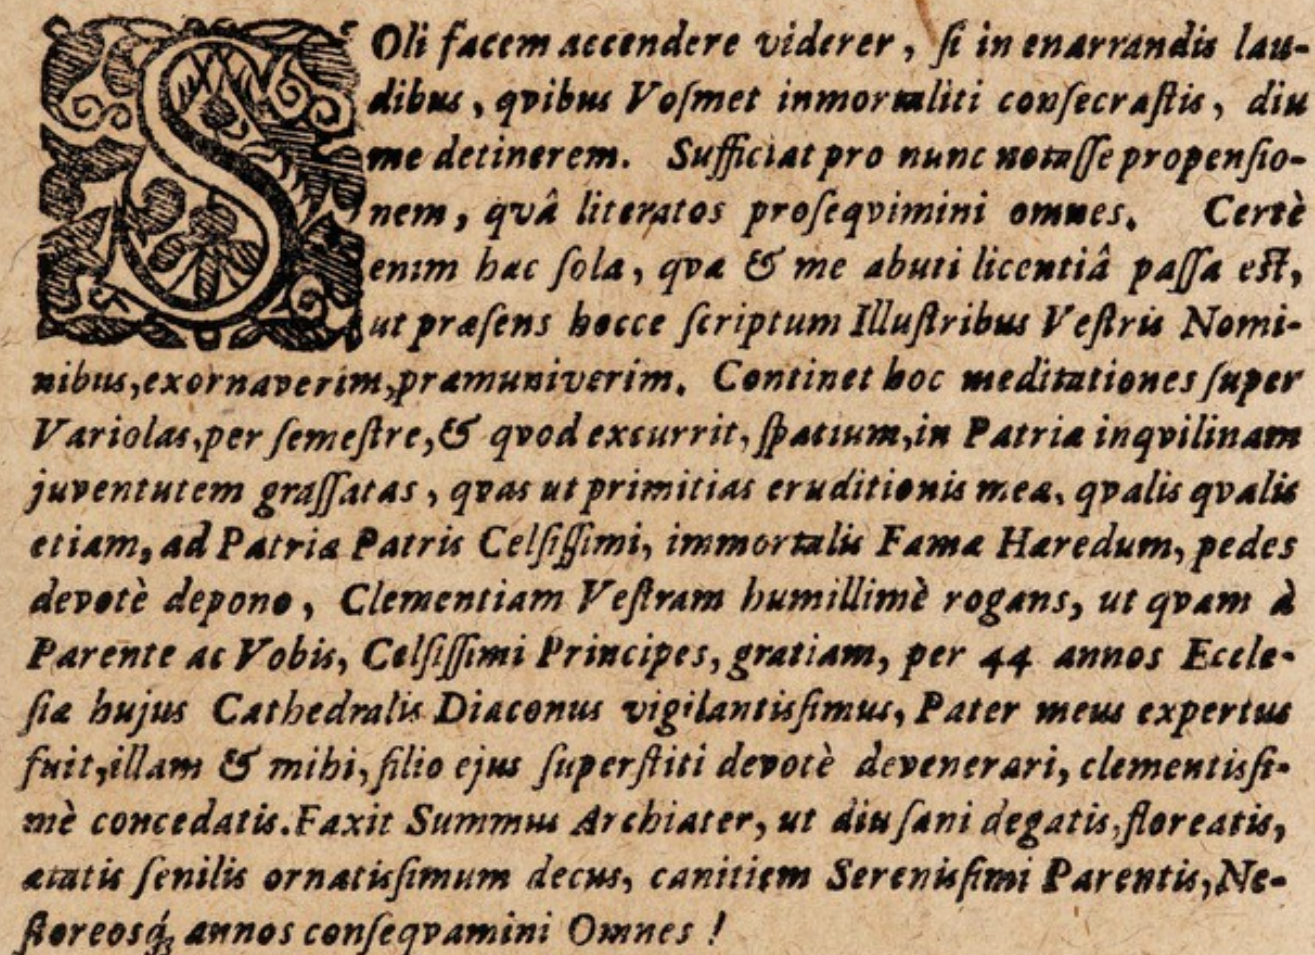 SOli facem accendere viderer, ſi in enarrandis lau-
dibus, qvibus Voſmet inmortaliti conſecraſtis, diu
me detinerem. Sufficiat pro nunc notaſſe propenſio-
nem, qvâ literatos proſeqvimini omnes. Certè
enim hac ſola, qvæ & me abuti licentiâ paſſa eſt,
ut præſens hocce ſcriptum Illuſtribus Veſtris Nomi-
nibus, exornaverim, præmuniverim. Continet hoc meditationes ſuper
Variolas, per ſemeſtre, & qvod excurrit, ſpatium, in Patria inqvilinam
juventutem graſſatas, qvas ut primitias eruditionis meæ, qvalis qvalis
etiam, ad Patriæ Patris Celſiſſimi, immortalis Famæ Hæredum, pedes
devotè depono, Clementiam Veſtram humillimè rogans, ut qvam à
Parente ac Vobis, Celſiſſimi Principes, gratiam, per 44 annos Eccle-
ſiæ hujus Cathedralis Diaconus vigilantisſimus, Pater meus expertus
fuit, illam & mihi, filio ejus ſuperſtiti devotè devenerari, clementisſi-
mè concedatis. Faxit Summus Archiater, ut diu ſani degatis, floreatis,
ætatis ſenilis ornatisſimum decus, canitiem Serenisſimi Parentis, Ne-
ſtoreosq́; annos conſeqvamini Omnes!